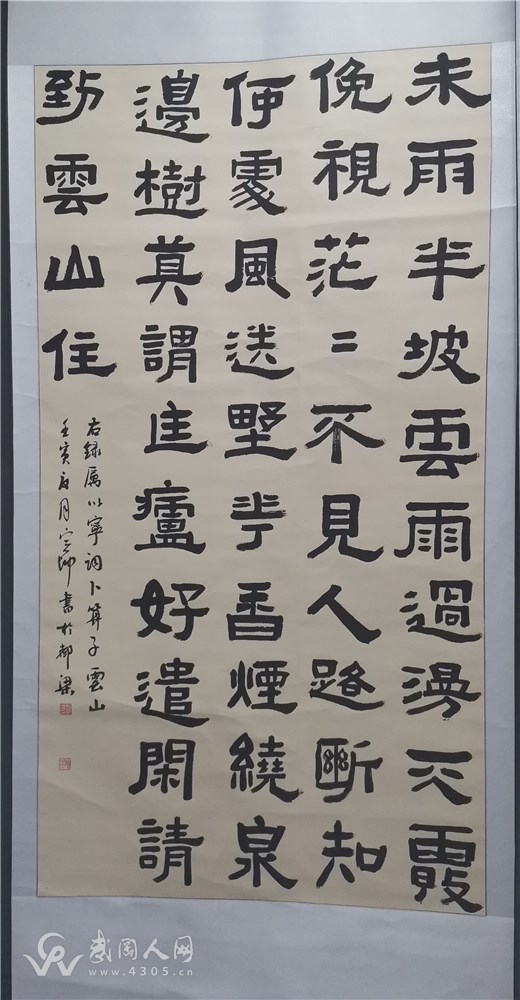 未雨半坡雲雨過漫天霞
俛視茫〻不見人路斷知
何處風送墅花香煙繞泉
邊樹莫謂匡廬好遣閑請
到雲山住
右錄厲以寧詞卜算子雲山
壬寅夏月書於都梁
武冈人网
www.4305.cn